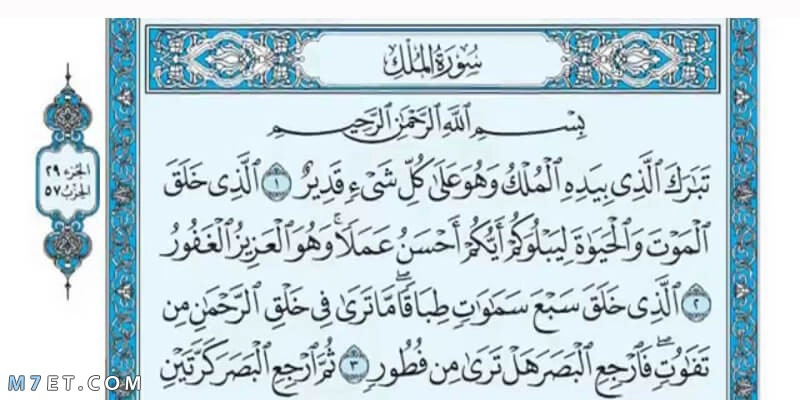 سُورَةُ الْمُلْكِ
الجزء ٢٩
الحزب ٥٧
بِسْمِ اللَّهِ الرَّحْمَٰنِ الرَّحِيمِ
تَبَارَكَ الَّذِي بِيَدِهِ الْمُلْكُ وَهُوَ عَلَىٰ كُلِّ شَيْءٍ قَدِيرٌ ١ الَّذِي خَلَقَ
الْمَوْتَ وَالْحَيَوٰةَ لِيَبْلُوَكُمْ أَيُّكُمْ أَحْسَنُ عَمَلًا ۚ وَهُوَ الْعَزِيزُ الْغَفُورُ
٢ الَّذِي خَلَقَ سَبْعَ سَمَٰوَٰتٍ طِبَاقًا ۖ مَّا تَرَىٰ فِي خَلْقِ الرَّحْمَٰنِ مِن
تَفَٰوُتٍ ۖ فَارْجِعِ الْبَصَرَ هَلْ تَرَىٰ مِن فُطُورٍ ٣ ثُمَّ ارْجِعِ الْبَصَرَ كَرَّتَيْنِ
M7ET.COM